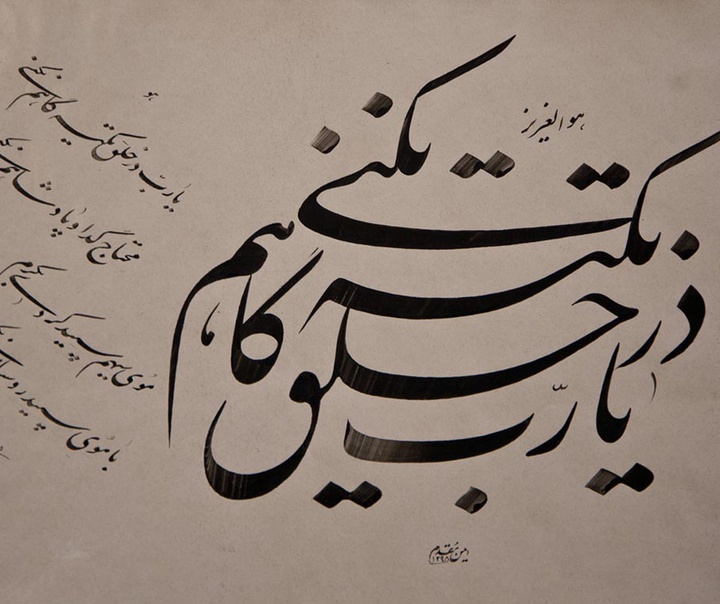 هو العزیز
یا ربّ در خلق تکیه گاهم نکنی
هو
یا ربّ در خلق تکیه گاهم نکنی
محتاج گدا و پادشاهم
موی سیهم سپید کردی بکرم
با موی سپید روسیا
امین مقدم